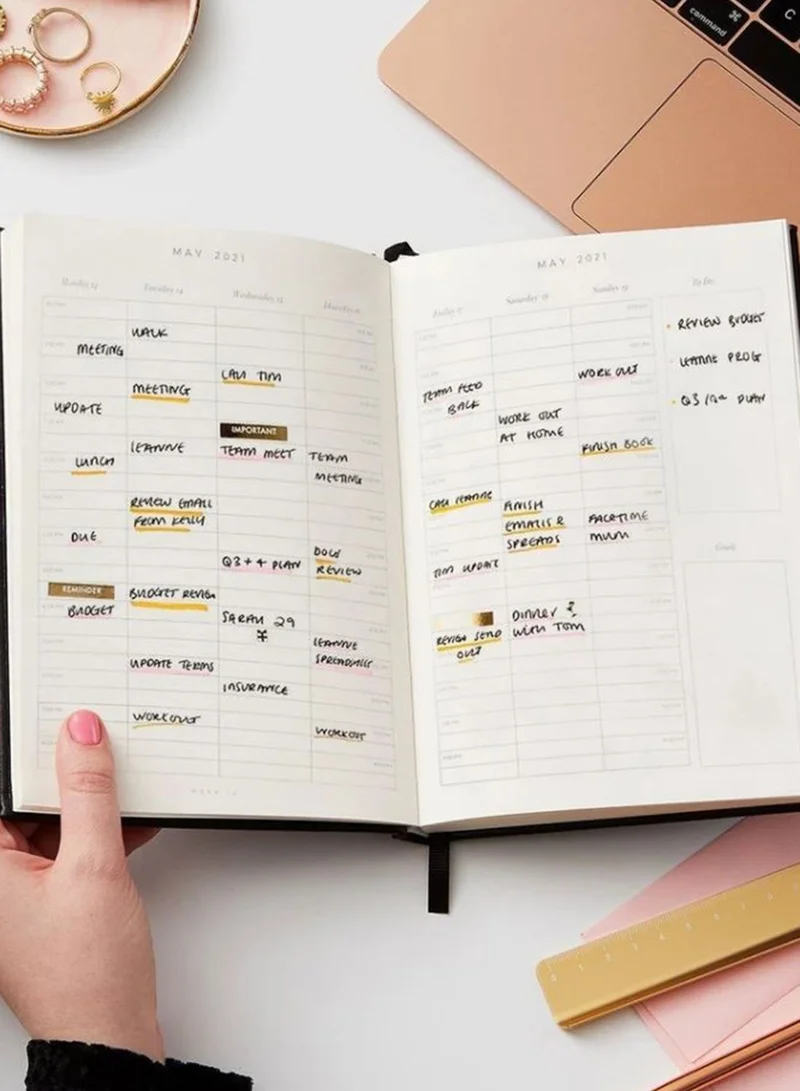 command
C
MAY 2021
Tuesday
Wednesday
WALK
MEETING
CALL TIM
MEETING
UPDATE
IMPORTANT
LEANNE
TEAM MEET
TEAM
MEETING
LUNCH
REVIEW EMAIL
FROM KELLY
DUE
Q3 + 4 PLAN
REVIEW
REMINDER
BUDGET
BUDGET REVIEW
SARAH 29
LEANNE
SPREADSHEETS
UPDATE TERMS
INSURANCE
WORKOUT
WORKOUT
MAY 2021
Friday
Saturday
Sunday
To Do
WORK OUT
TEAM FEED
BACK
WORK OUT
AT HOME
FINISH BOOK
CALL LEANNE
FINISH
EMAILS &
SPREADS
FACETIME
MUM
TIM UPDATE
DINNER
WITH TOM
REVIEW SEND
OUT
REVIEW BUDGET
LEANNE PROG
PLAN
Goals